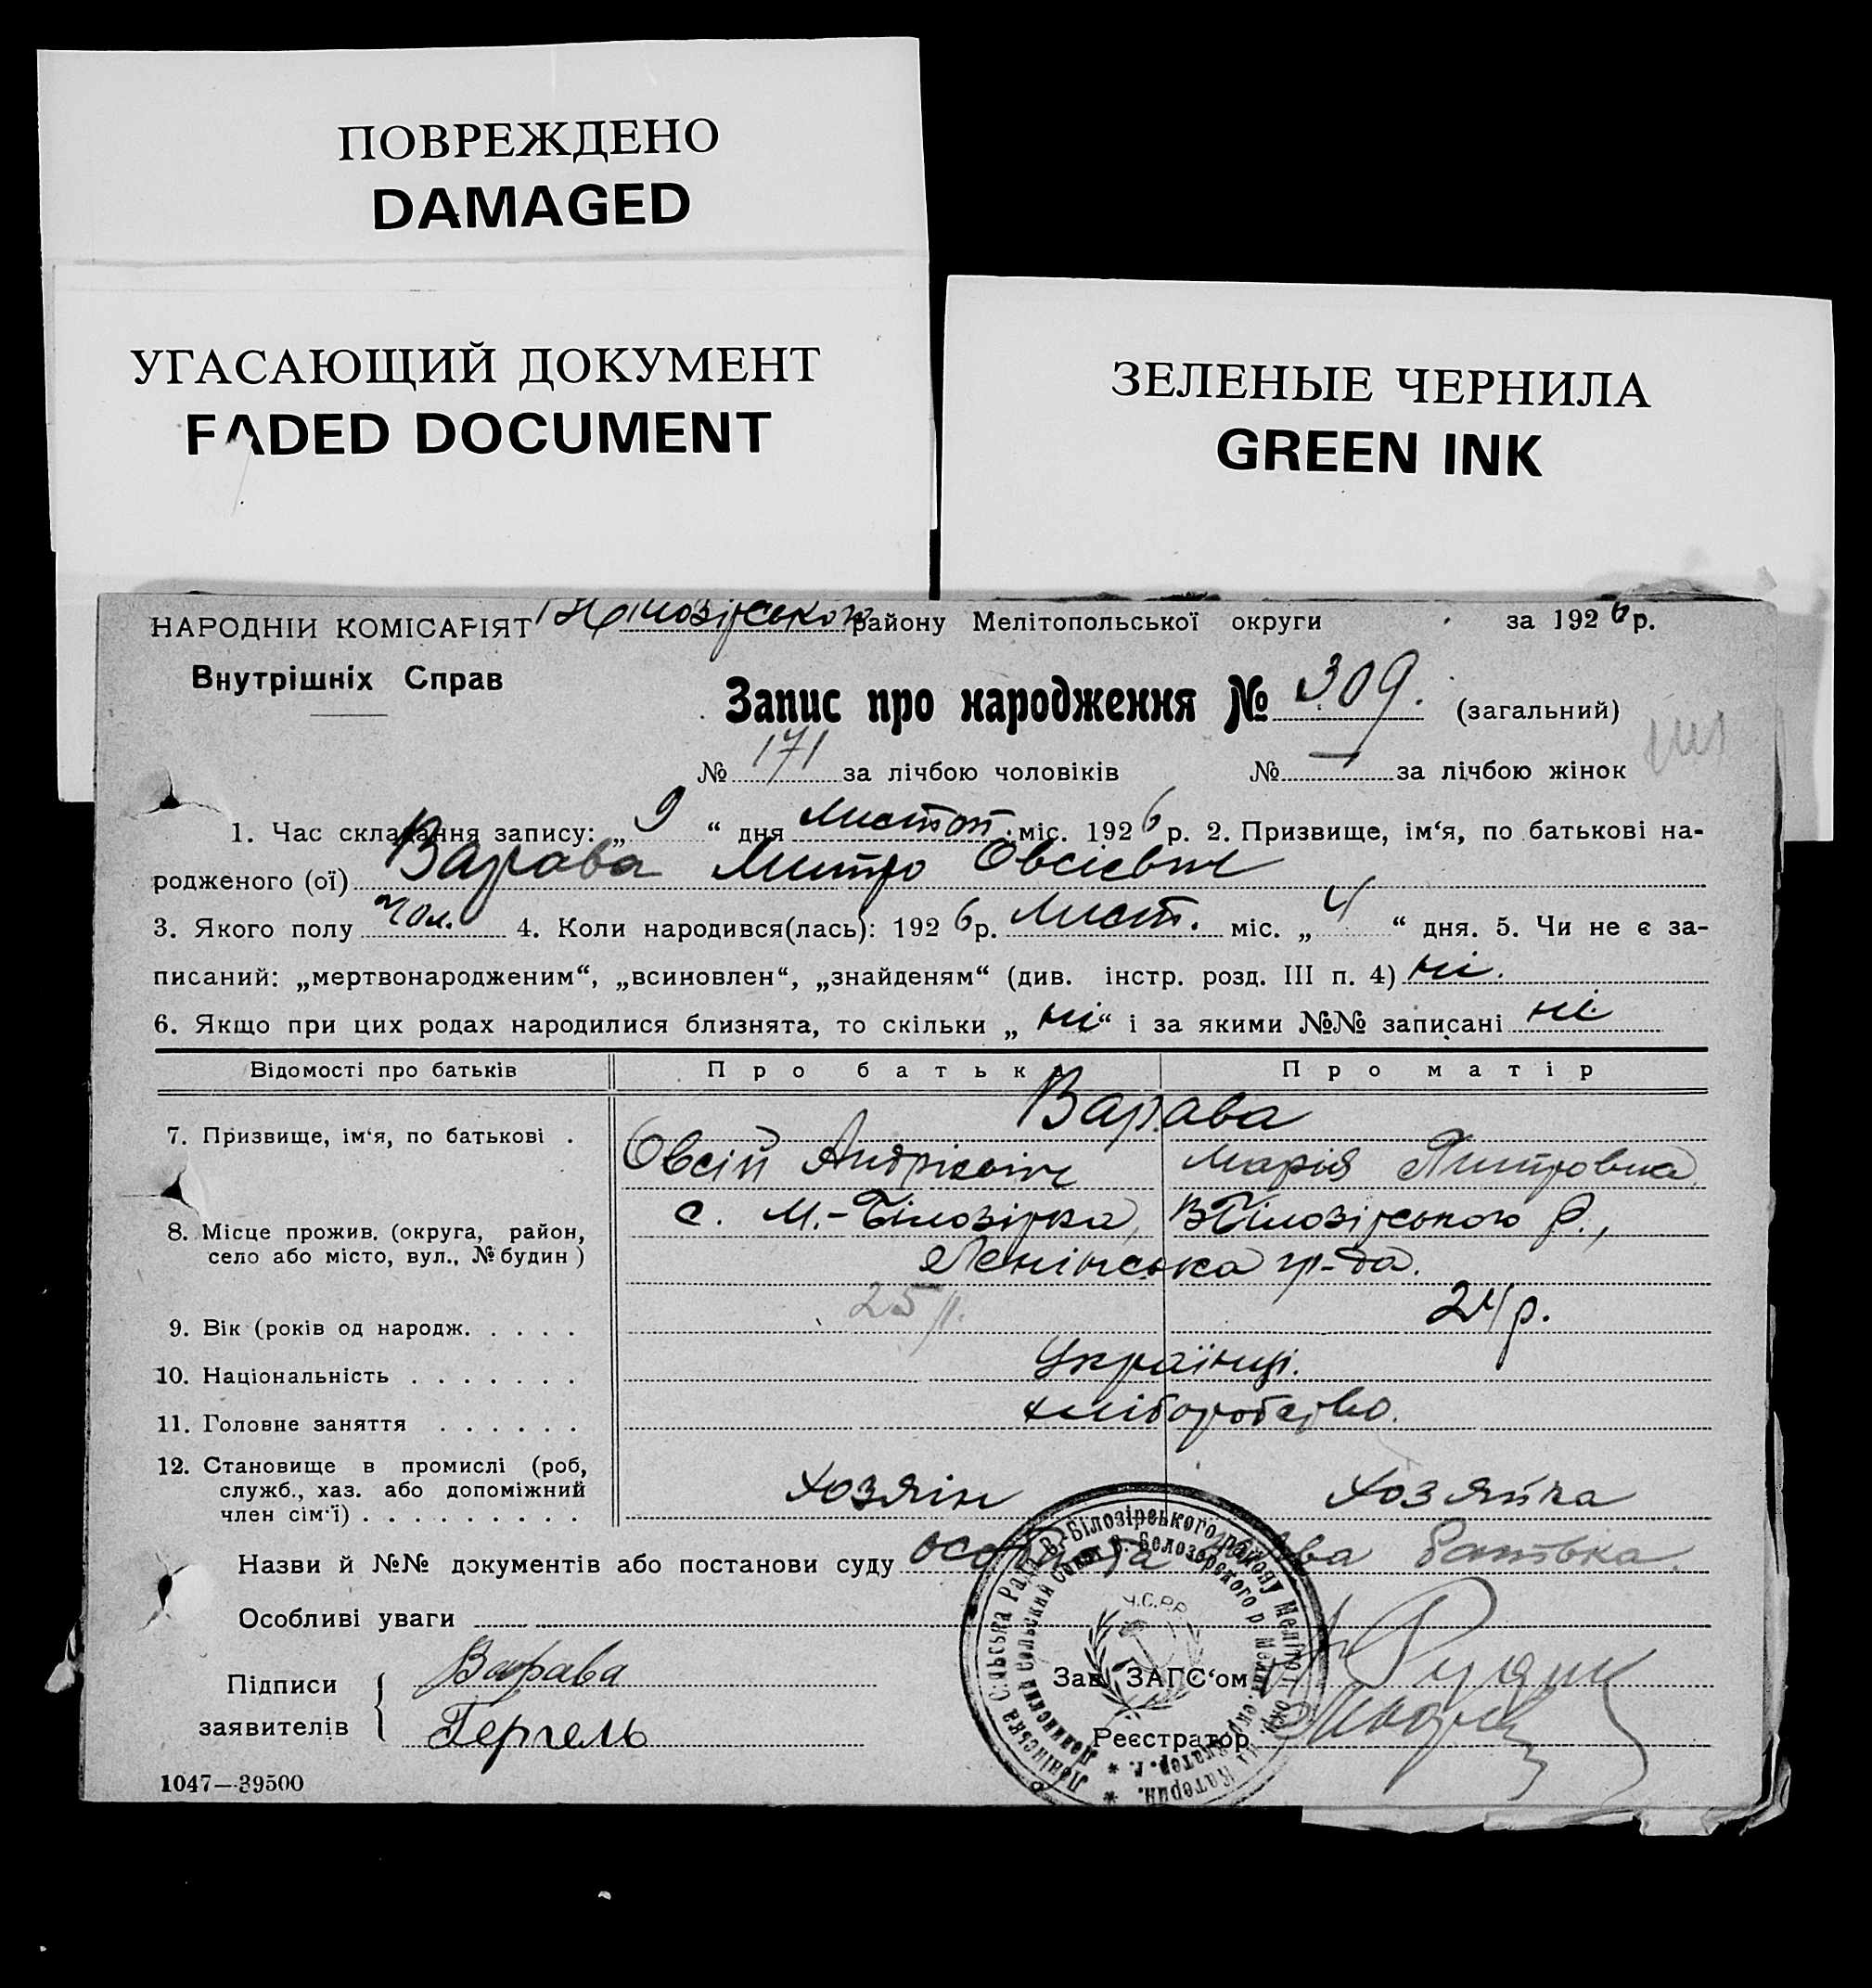 ПОВРЕЖДЕНО
DAMAGED
УГАСАЮЩИЙ ДОКУМЕНТ
FADED DOCUMENT
ЗЕЛЕНЫЕ ЧЕРНИЛА
GREEN INK
НАРОДНІЙ КОМІСАРІЯТ району Мелітопольської округи за 1926 р.
Внутрішніх Справ
Запис про народження № 309. (загальний)
№ 171 за лічбою чоловіків № — за лічбою жінок
1. Час складання запису: „ 9 “ дня листоп. міс. 1926 р. 2. Призвище, ім‘я, по батькові на-
родженого (ої) Варава Митро Овсієвич
3. Якого полу чол. 4. Коли народився(лась): 1926 р. Лист. міс. „ 4 “ дня. 5. Чи не є за-
писаний: „мертвонародженим“, „всиновлен“, „знайденям“ (див. інстр. розд. III п. 4) ні.
6. Якщо при цих родах народилися близнята, то скільки „ ні “ і за якими №№ записані ні.
Відомості про батьків Про батька Про матір
Варава
7. Призвище, ім‘я, по батькові .
Овсій Андрієвіч Марія Дмитровна
8. Місце прожив. (округа, район,
село або місто, вул., № будин)
с. М.-Білозірка, ВБілозірського р.,
Ленінська гр-да.
9. Вік (років од народж. . . . . 25 р. 24 р.
10. Національність . . . . . . . Українці.
11. Головне заняття . . . . . . хліборобство.
12. Становище в промислі (роб,
служб., хаз. або допоміжний
член сім‘ї) . . . . . . . . .
Хозяін Хозяйка
Назви й №№ документів або постанови суду особиста заява батька.
Особливі уваги
Підписи
заявителів
Варава
Гергель
Зав. ЗАГС‘ом
Реєстратор
Ленінська Сільська Рада В-Білозірського району Меліто
У.С.Р.Р.
1047—39500